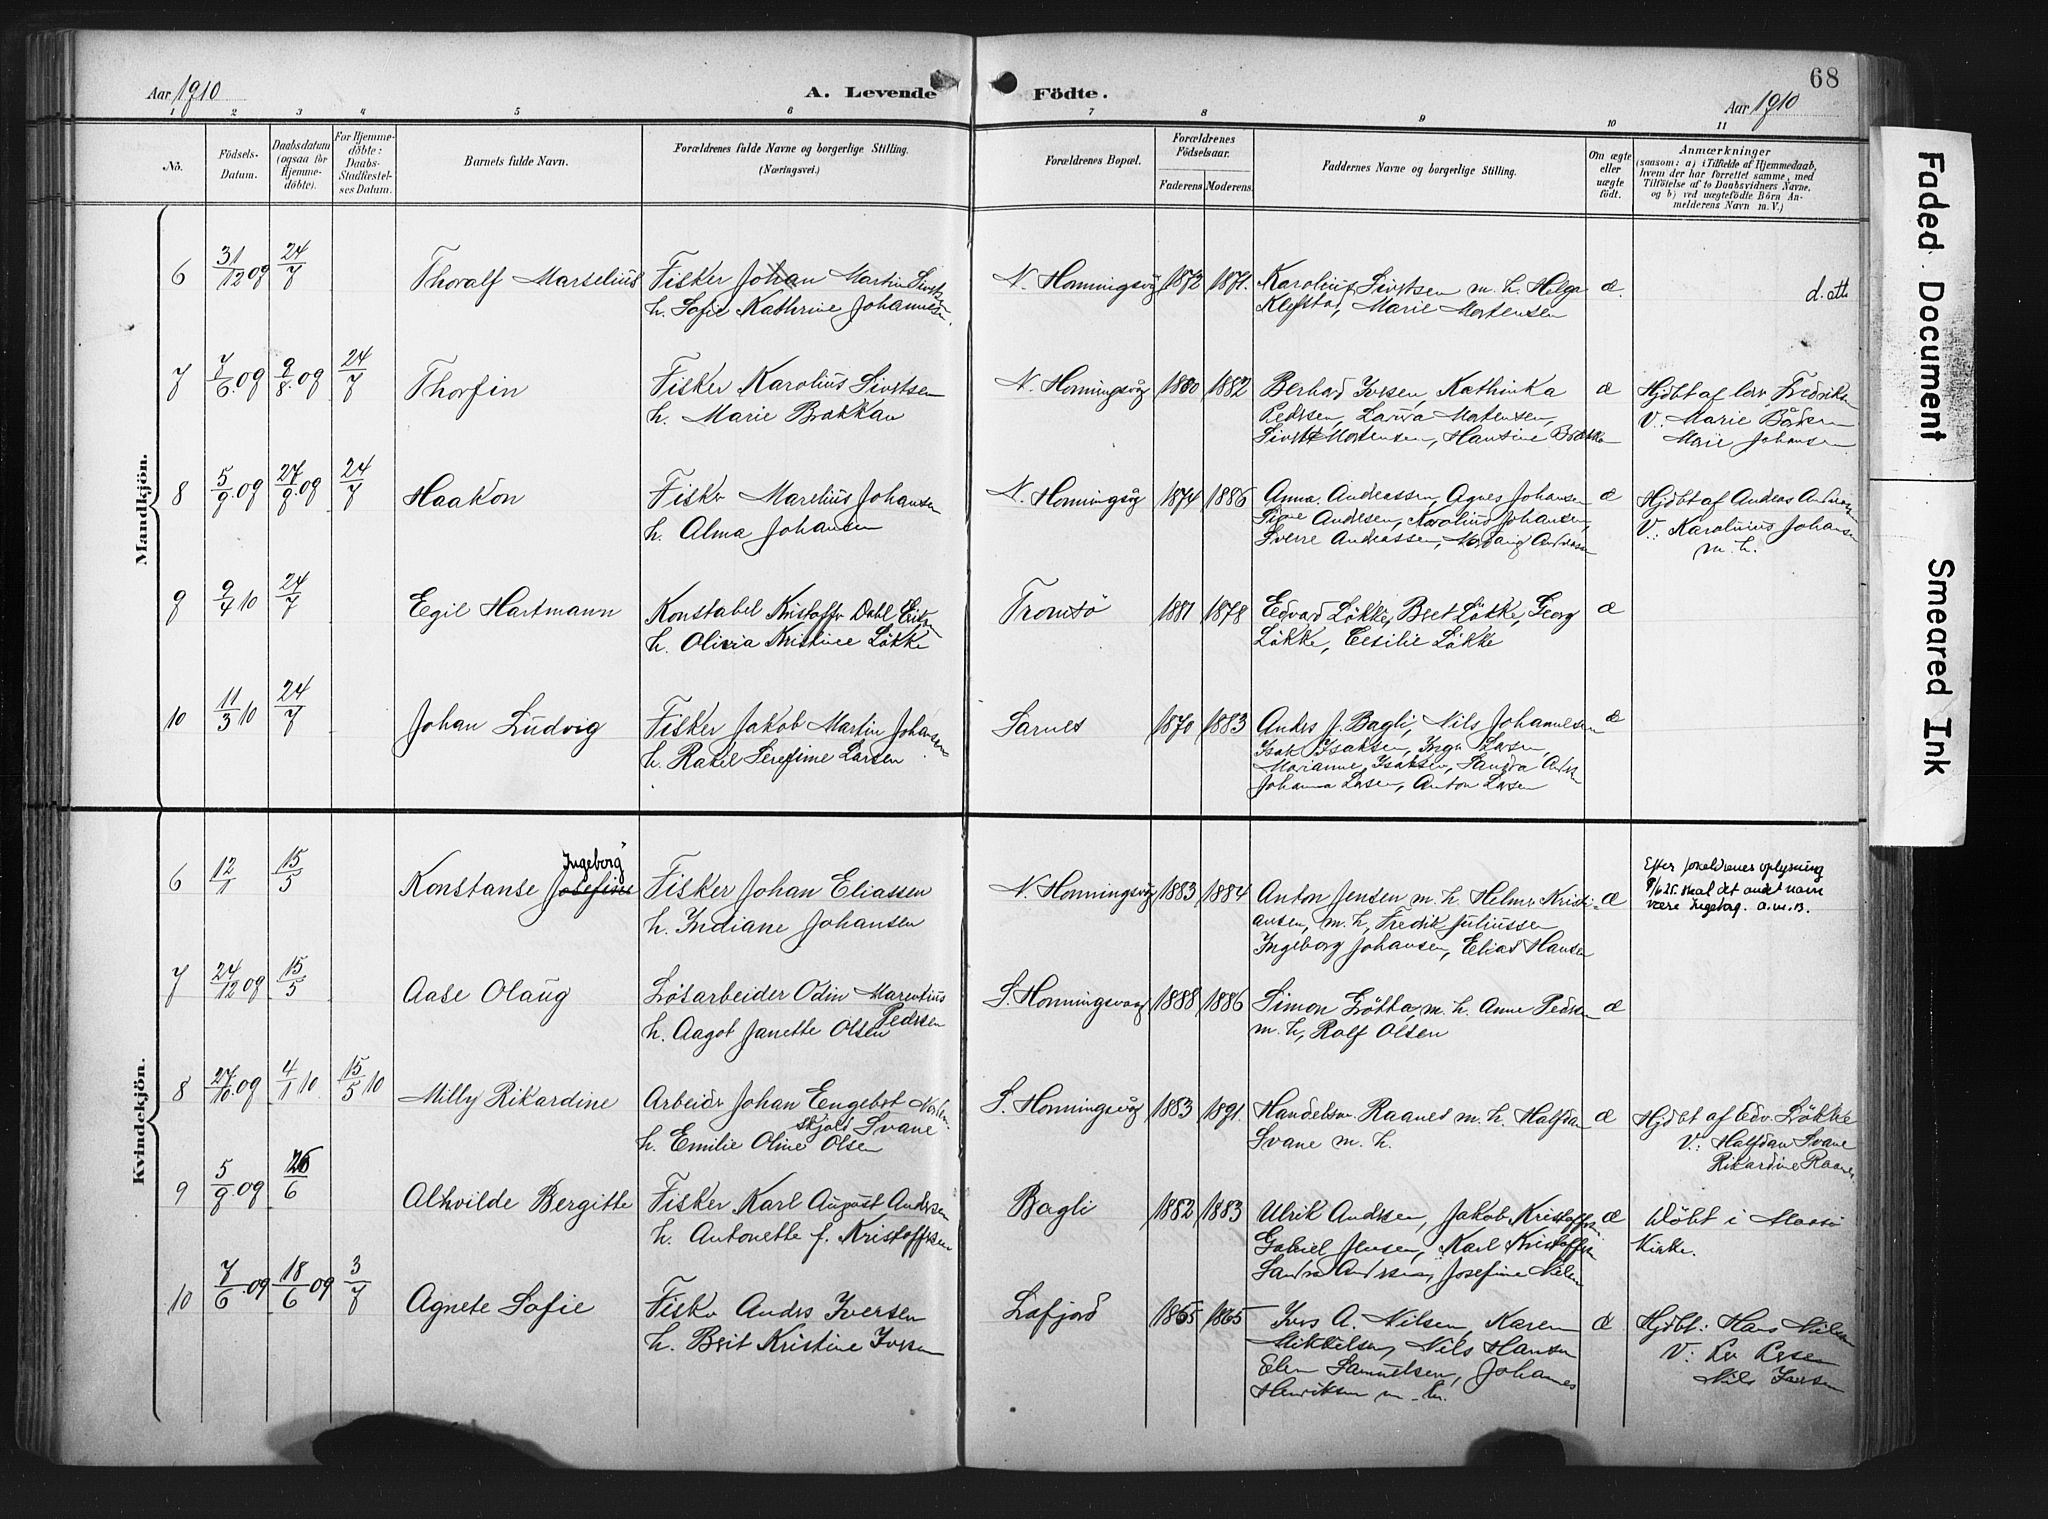 Aar 1910
A. Levende Födte.
68
Aar 1910
1 2 3 4 5 6 7 8 9 10 11
No.
Födsels-Datum.
Daabsdatum (ogsaa for Hjemmedöbte).
For Hjemmedöbte: Daabs-Stadfestelses Datum.
Barnets fulde Navn.
Forældrenes fulde Navne og borgerlige Stilling. (Næringsvei.)
Forældrenes Bopæl.
Forældrenes Födselsaar.
Faderens. Moderens.
Faddernes Navne og borgerlige Stilling.
Om ægte eller uægte födt.
Anmærkninger
(saasom: a) i Tilfælde af Hjemmedaab, hvem der har forrettet samme, med Tilföielse af to Daabsvidners Navne, og b) ved uægtefödte Börn Anmelderens Navn m. V.)
Mandkjön.
6 31/12 09 24/7 Thoralf Marselius Fisker Johan Martin Sivertsen N. Honningsvåg 1872 1871. Karolius Sivertsen m. h. Helga æ. d. att
h. Sofie Kathrine Johannesen. Klefstad, Marie Mortensen
7 7/6 09 9/8 09 24/7 Thorfin Fisker Karolius Sivertsen N. Honningsvåg 1880 1882 Berhard Iversen, Kathinka æ Hjdbt af Fredriksen
h. Marie Brakkan Pedersen, Laura Mortensen, V: Marie
Sivert Mortensen, Hansine Marie Johansen
8 5/9 09 27/9 09 24/7 Haakon Fisker Marelius Johansen N. Honningsvåg 1874 1886 Anna Andreassen, Agnes Johansen æ Hjdbt af Andeas
h. Alma Johansen Signe Andersen, Karolius Johansen, V: Karolius Johansen
Sverre Andreassen, m. h.
9 9/4 10 24/7 Egil Hartmann Konstabel Kristoffer Dahl Eriksen Tromsö 1881 1878 Edvard Løkke, Beret Løkke, Georg æ
h. Olivia Kristine Løkke Løkke, Cecilie Løkke
10 11/3 10 24/7 Johan Ludvig Fisker Jakob Martin Johansen Sarnes 1870 1883 Anders J. Bagli, Nils Johannesen æ
h. Rakel Serefine Larsen Isak Isaksen, Inga Larsen,
Marianne Isaksen, Sandra
Johanna Larsen, Anton Larsen
Kvindekjön.
6 12/1 15/5 Konstanse Josefine "Ingeborg" Fisker Johan Eliassen N. Honningsvåg 1883 1884 Anton Jensen m. h. Helmer Kristi- æ
h. Indiane Johansen ansen, m. h, Fredrik Juliussen
Ingeborg Johansen, Elias Hansen
Efter foreldrenes oplysning
9/6 25. skal det andet navn
være Ingeborg. A.M.B.
7 24/12 09 15/5 Aase Olaug Løsarbeider Odin Marentius S. Honningsvaag 1888 1886 Simon Grøtta, m. h. Anne Pedersen æ
Pedersen
h. Aagot Janette Olsen m. h, Rolf Olsen
8 27/10 09 4/1 10 15/5 10 Milly Rikardine Arbeider Johan Engebret S. Honningsvåg 1883 1891. Handelsm. Raanes m. h. Halfdan æ Hjdbt af Edv. Løkke
skjold Svane Svane m. h. V: Halfdan Svane
h. Emilie Oline Olsen Rikardine Raanes
9 5/9 09 26/6 Alhvilde Bergitte Fisker Karl August Andersen Bagli 1882 1883 Ulrik Andersen, Jakob Kristoffersen æ Døbt i Maasø
h. Antonette f. Kristoffersen Gabriel Jensen, Karl Kristoffersen Kirke.
Sandra Andersen, Josefine Nilsen
10 7/6 09 18/6 09 3/7 Agnete Sofie Fisker Anders Iversen Lafjord 1865 1865 Ivers A. Nilsen, Karen æ Hjdbt: Hans Nilsen
h. Berit Kristine Iversen Mikkelsen, Nils Hansen V:
Elen Samuelsen, Johannes Nils Iversen
Henriksen m. h.
Faded Document
Smeared Ink